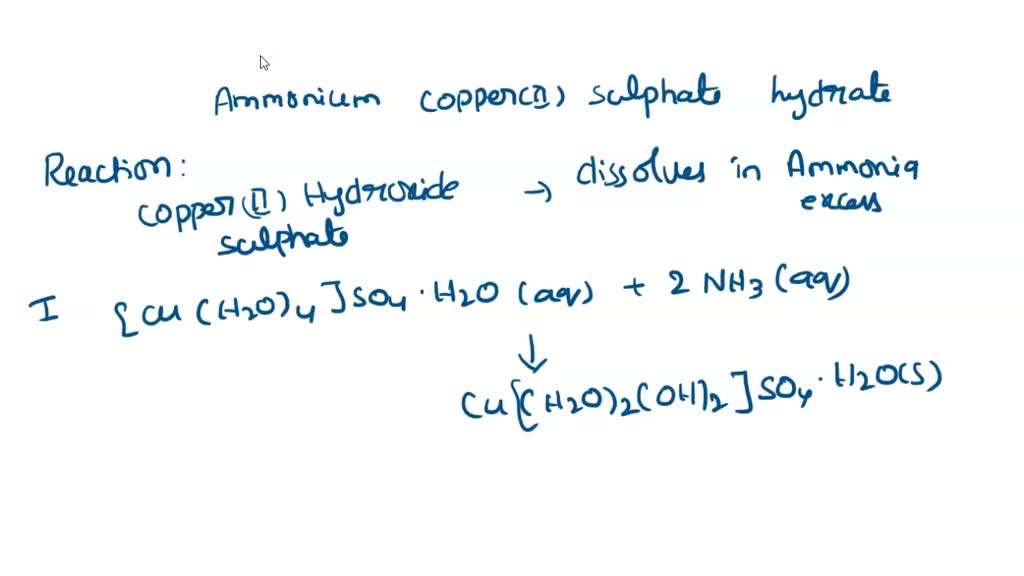 Ammonium copper(II) sulphate hydrate
Reaction:
copper(II) Hydroxide → dissolves in Ammonia
sulphate excess
I [Cu(H2O)4]SO4·H2O (aq) + 2 NH3(aq)
↓
Cu[(H2O)2(OH)2]SO4·H2O(S)